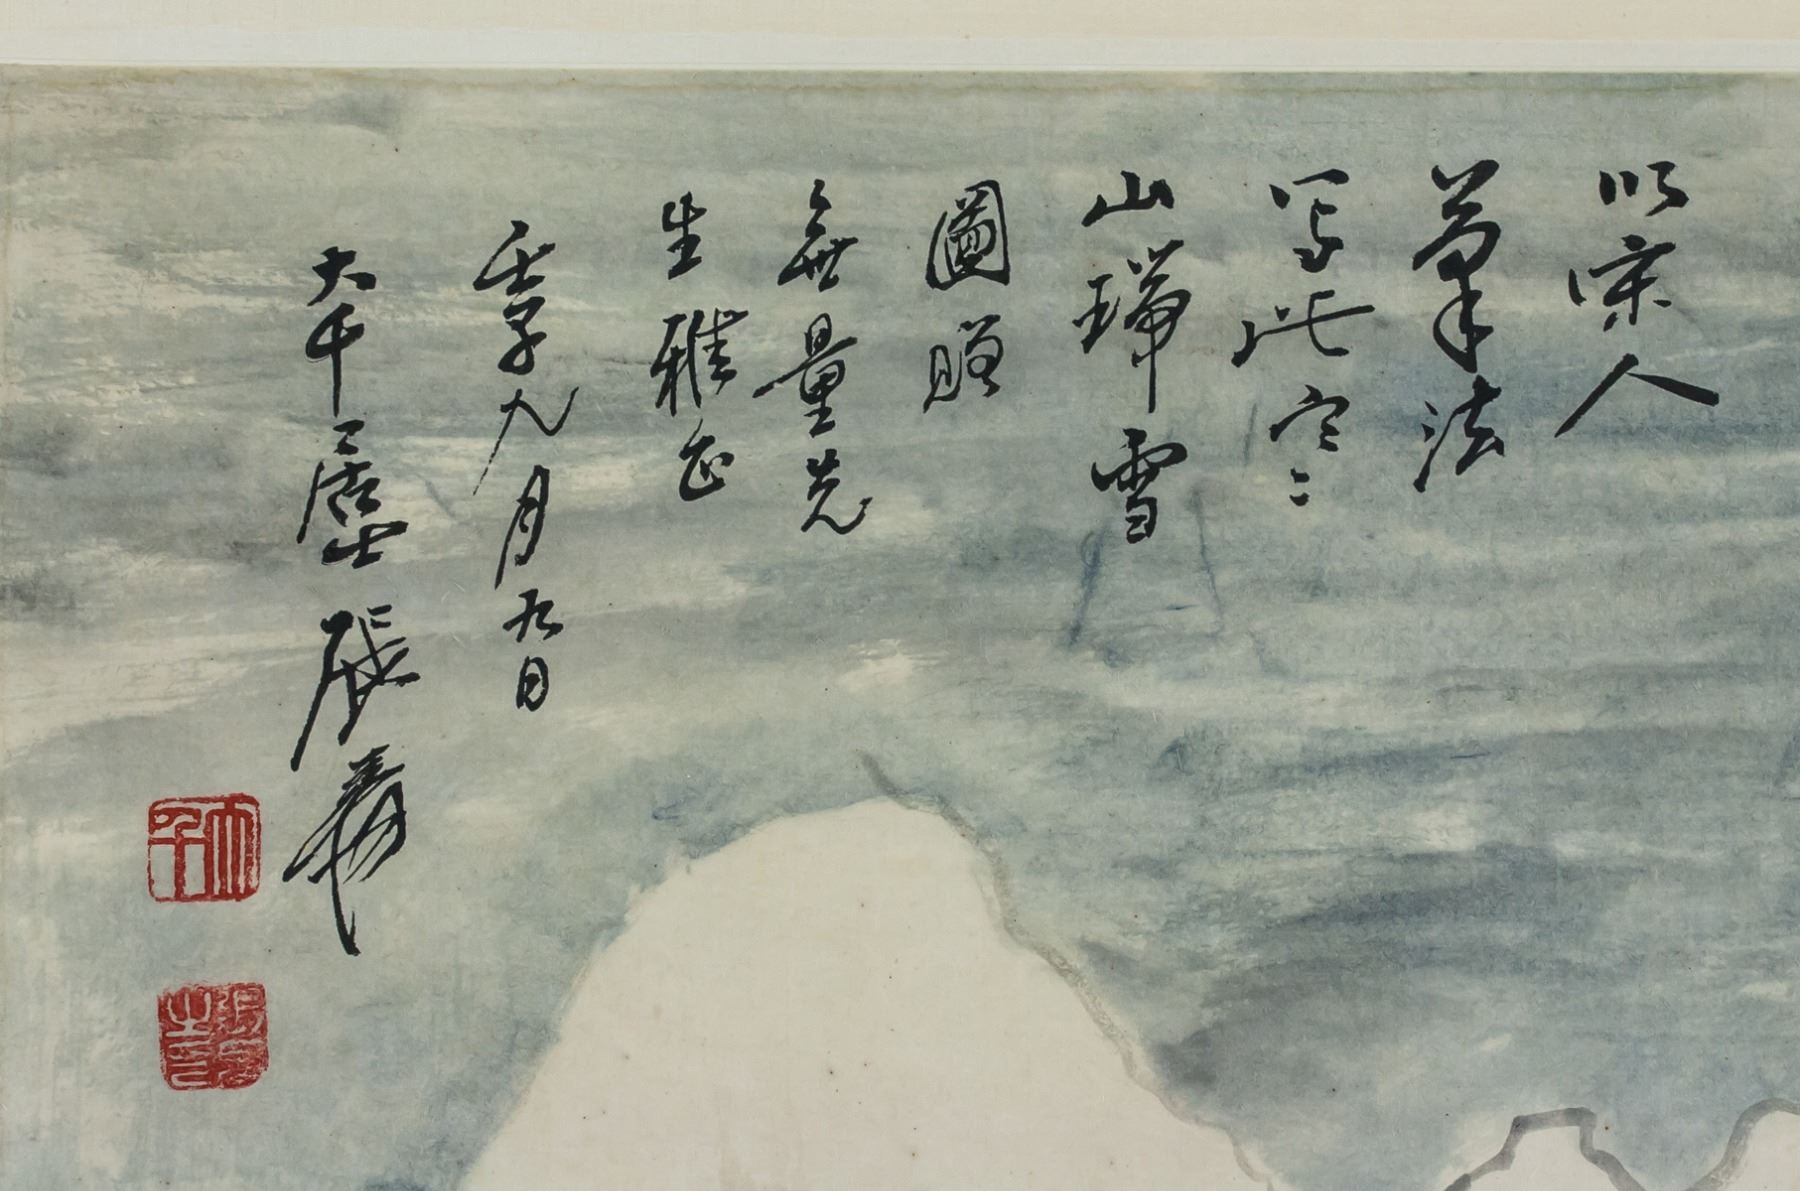 以宋人
筆法
写此寒
山瑞雪
圖贈
無量先
生雅正
壬子九月九日
大千居士張爰
大千
張爰之印